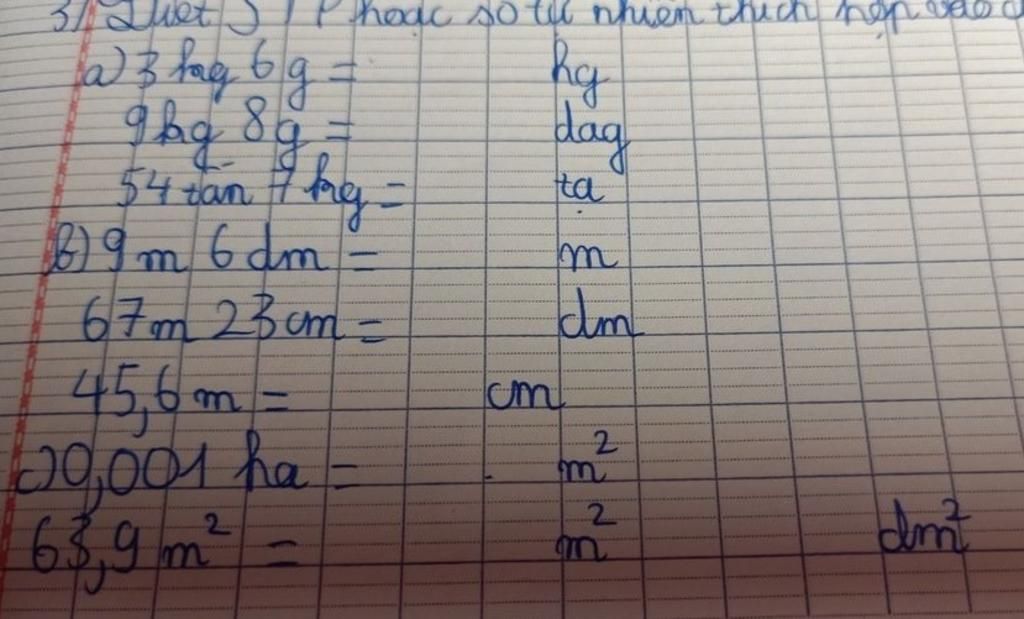 3) Viết STP hoặc số tự nhiên thích hợp vào
a) 3 kg 6 g = hg
9 hg 8 g = dag
54 tấn 7 kg = tạ
b) 9 m 6 dm = m
67 m 23 cm = dm
45,6 m = cm
c) 0,001 ha = m²
63,9 m² = m² dm²